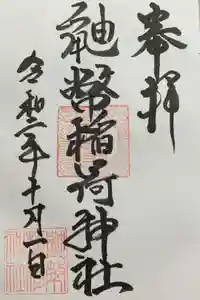 奉拝
幣稲荷神社
令和二年十月一日